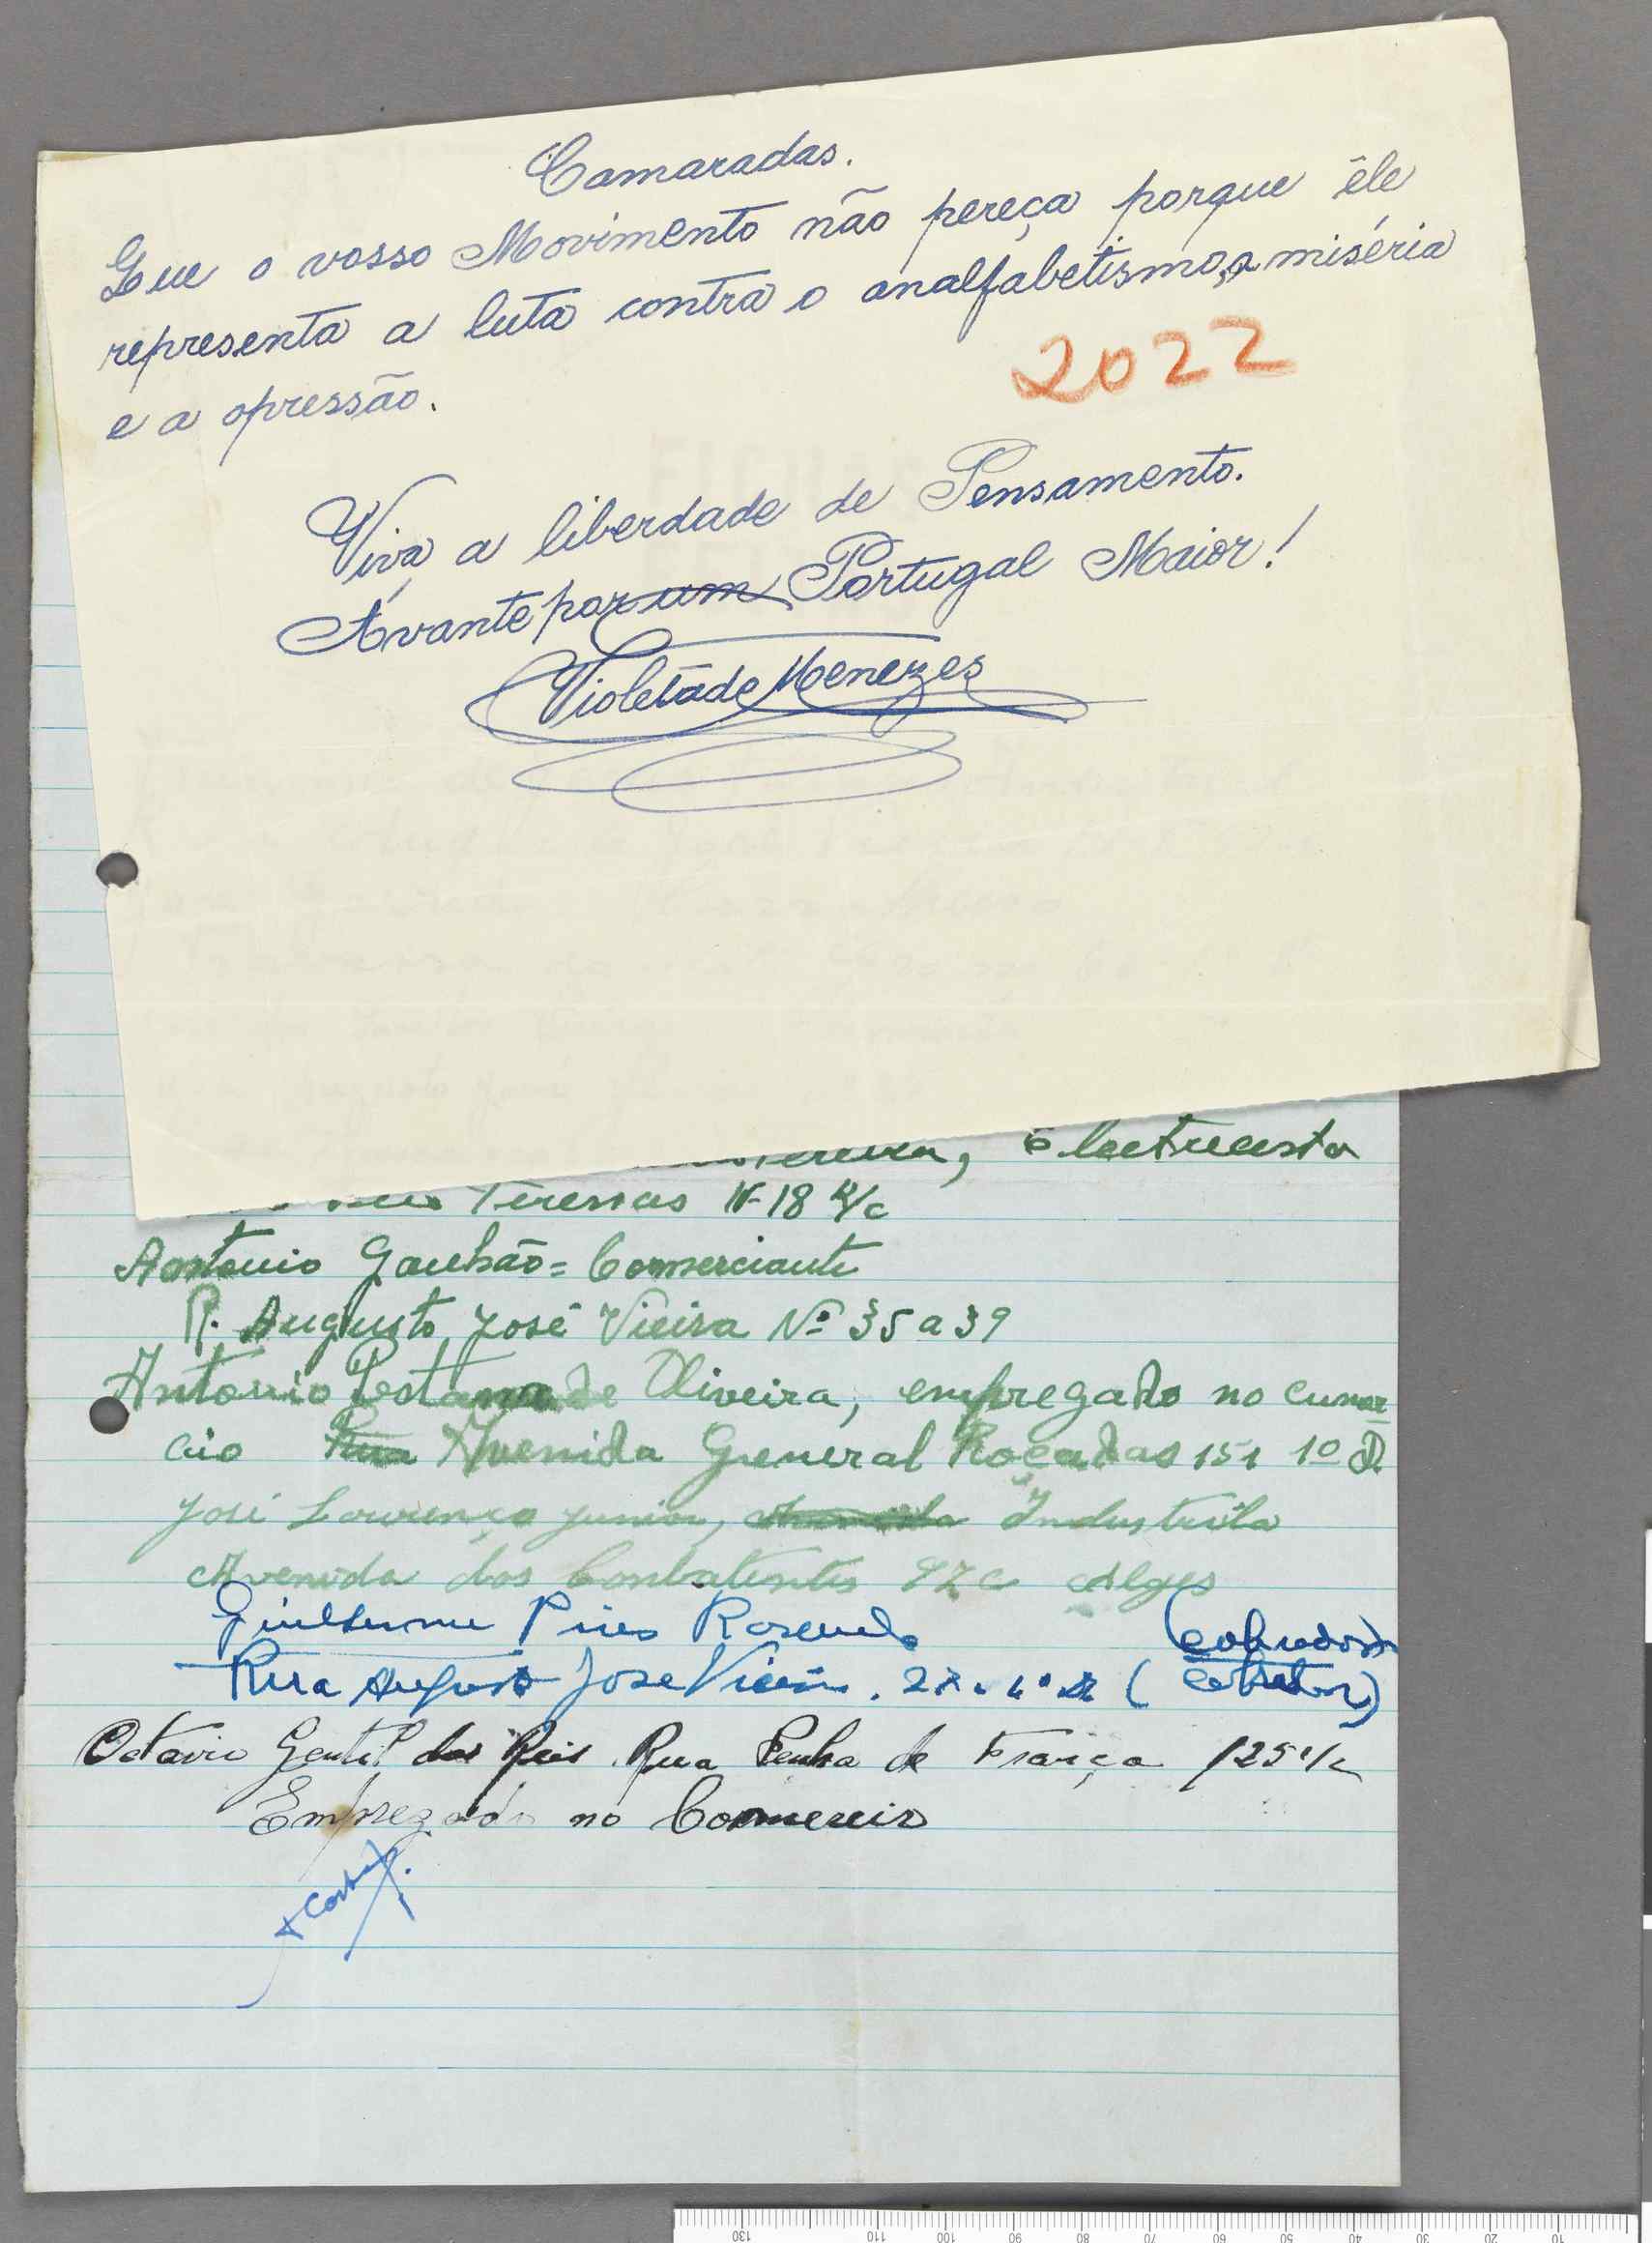 Camaradas.
Que o vosso Movimento não pereça porque êle
representa a luta contra o analfabetismo, a miséria
e a opressão.
2022
Viva a liberdade de Pensamento.
Ávante por um Portugal Maior!
Violeta de Menezes
Electrecista
Teressas Nº 18 R/c
Antonio Ganhão = Comerciante
R. Augusto José Vieira Nº 35 a 39
Antonio Pestana de Oliveira, empregado no cumer-
cio Rua Avenida General Roçadas 151 1º D.
José Lourenço Junior, Industrila
Avenida dos Combatentes Alges
Guilherme Pires (cobrador)
Rua Augusto José Vieira. 27. 4º (cobrador)
Octavio Gentil dos Reis. Rua Penha de França 125 r/c
Empregado no Comercio
130 110 100 90 80 70 60 50 40 30 20 10